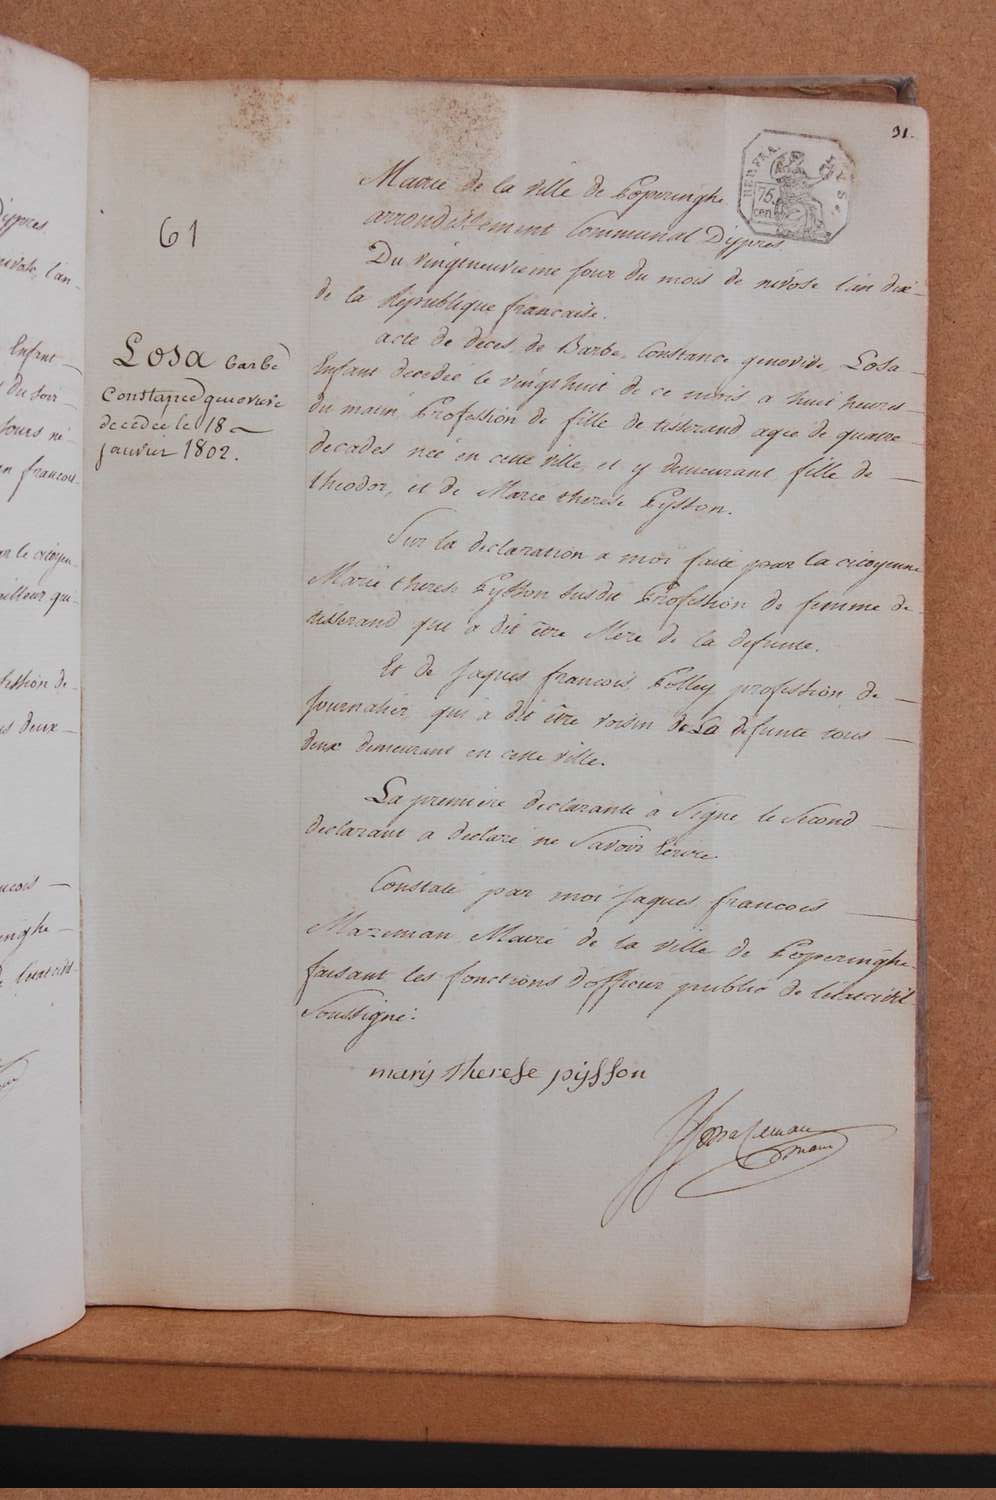 31.
REP. FRA.
75.
cen
61
Losa barbe
Constance genovive
decedée le 18
janvier 1802.
Mairie de la ville de Poperinghe
arrondissement Communal D'ypres
Du vingtneuvieme jour du mois de nivose l'an dix
de la Republique francaise.
acte de deces, de Barbe, Constance genovive, Losa
Enfant decedée le vingthuit de ce mois a huit heures
du matin, Profession de fille de tisserand agée de quatre
decades née en cette ville, et y demeurant fille de
theodor, et de Marie therese Pysson.
Sur la declaration a moi faite par la citoyenne
Marie therese Pysson susdit Profession de femme de
tisserand qui a dit être Mere de la defunte.
Et de jaques francois, Polley profession de
journalier, qui a dit être voisin de La defunte tous
deux demeurant en cette ville.
La premiere declarante a signé le second
declarant a declaré ne savoir Ecrire
Constaté par moi jaques francois
Mazeman Maire de la ville de Poperinghe
faisant les fonctions d'officier public de l'etat civil
soussigné.
marij therese pijsson
J f Mazeman
maire
D'ypres
nivose, l'an
Enfant
du soir
jours né
francois
le citoyen
qui
profession de
deux
francois